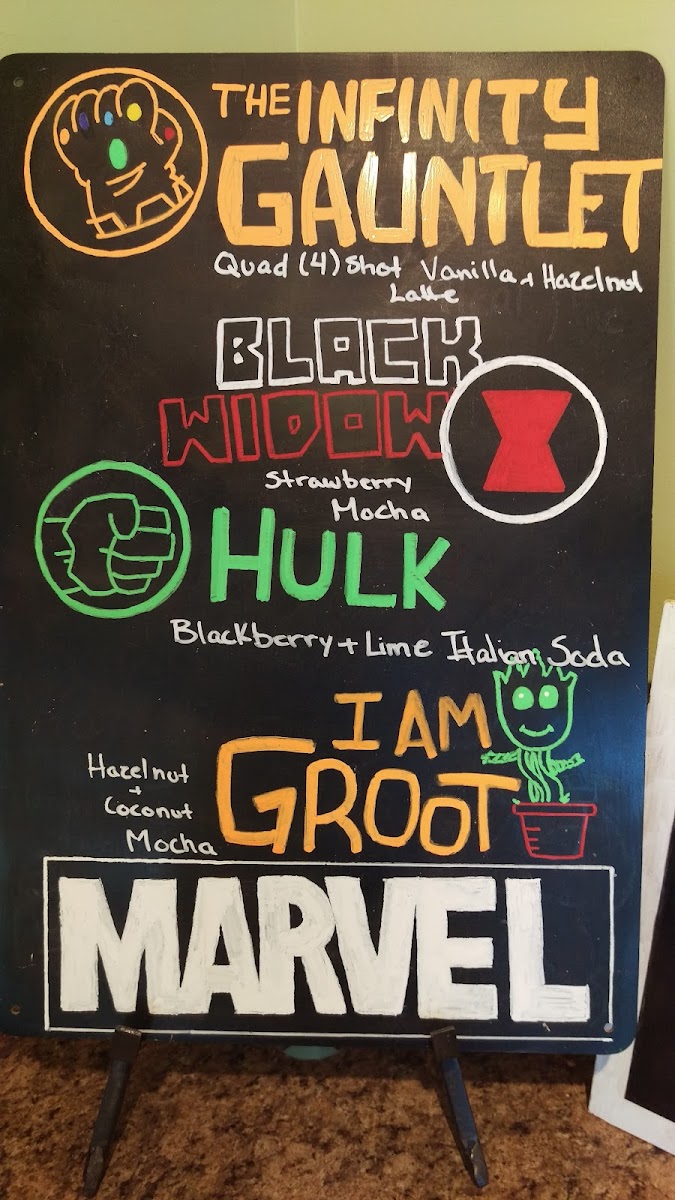 THE INFINITY
GAUNTLET
Quad (4) Shot Vanilla + Hazelnut
Latte
BLACK
WIDOW
Strawberry
Mocha
HULK
Blackberry + Lime Italian Soda
I AM
GROOT
Hazelnut
+
Coconut
Mocha
MARVEL